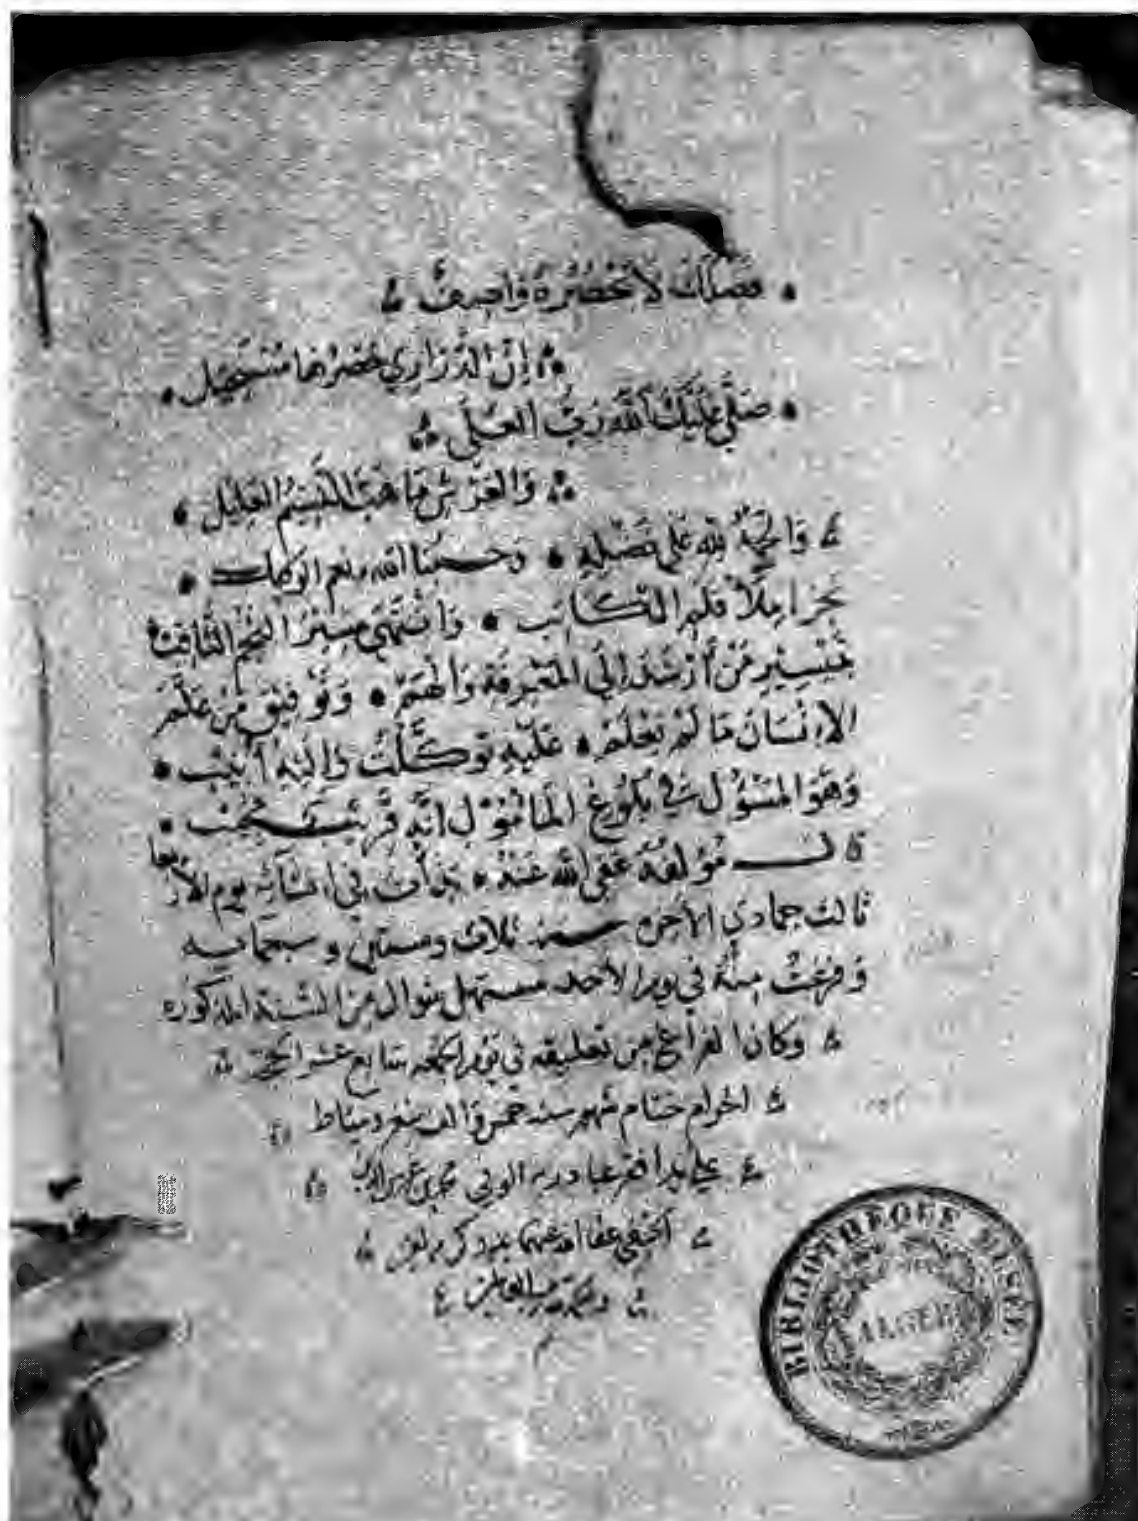 فضلك لا يحصره واصف
إن الدراري حصرها مستحيل
صلى عليك الله رب العلى
والعرش ما هب النسيم العليل
والحمد لله على فضله وحسبنا الله ونعم الوكيل
نجز املاً قلم الكاتب وانتهى سير النجم الثاقب
بتيسير من أرشد إلى المعرفة وألهم وتوفيق من علم
الإنسان ما لم يعلم عليه توكلت وإليه أنيب
وهو المسؤول في بلوغ المأمول إنه قريب مجيب
قال مؤلفه عفى الله عنه بدأت في انشائه يوم الأربعا
ثالث جمادى الآخرة سنة ثلاث وستين وسبعمايه
وفرغت منه في يوم الأحد مستهل شوال من السنة المذكوره
وكان الفراغ من تعليقه في يوم الجمعه سابع عشر الحجة
الحرام ختام شهور سنه خمس والف بثغر دمياط
على يد أفقر عباد ربه محمد بن
الحنفي عفا الله عنهما بمنه وكرمه
رب العالمين
BIBLIOTHEQUE MUSEE
ALGER